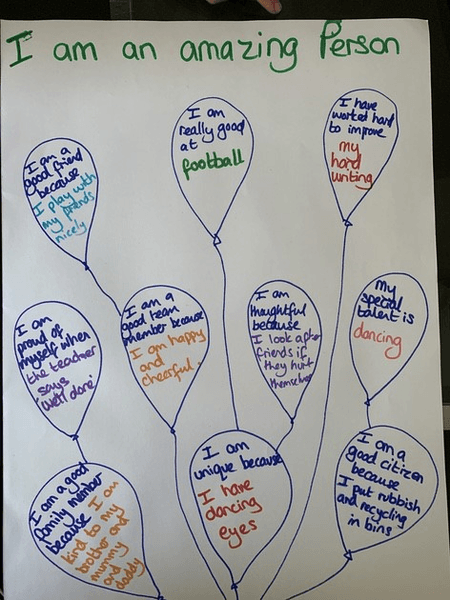 I am an amazing Person
I am a
good friend
because
I play with
my friends
nicely
I am
really good
at
football
I have
worked hard
to improve
my
hard
writing
I am
proud of
myself when
the teacher
says
well done
I am a
good team
member because
I am happy
and
cheerful.
I am
thoughtful
because
I look after
friends if
they hurt
themselves
My
special
talent is
dancing
I am a good
family member
because I am
kind to my
brother and
mummy
and
daddy
I am
unique because
I have
dancing
eyes
I am a
good citizen
because
I put rubbish
and recycling
in bins